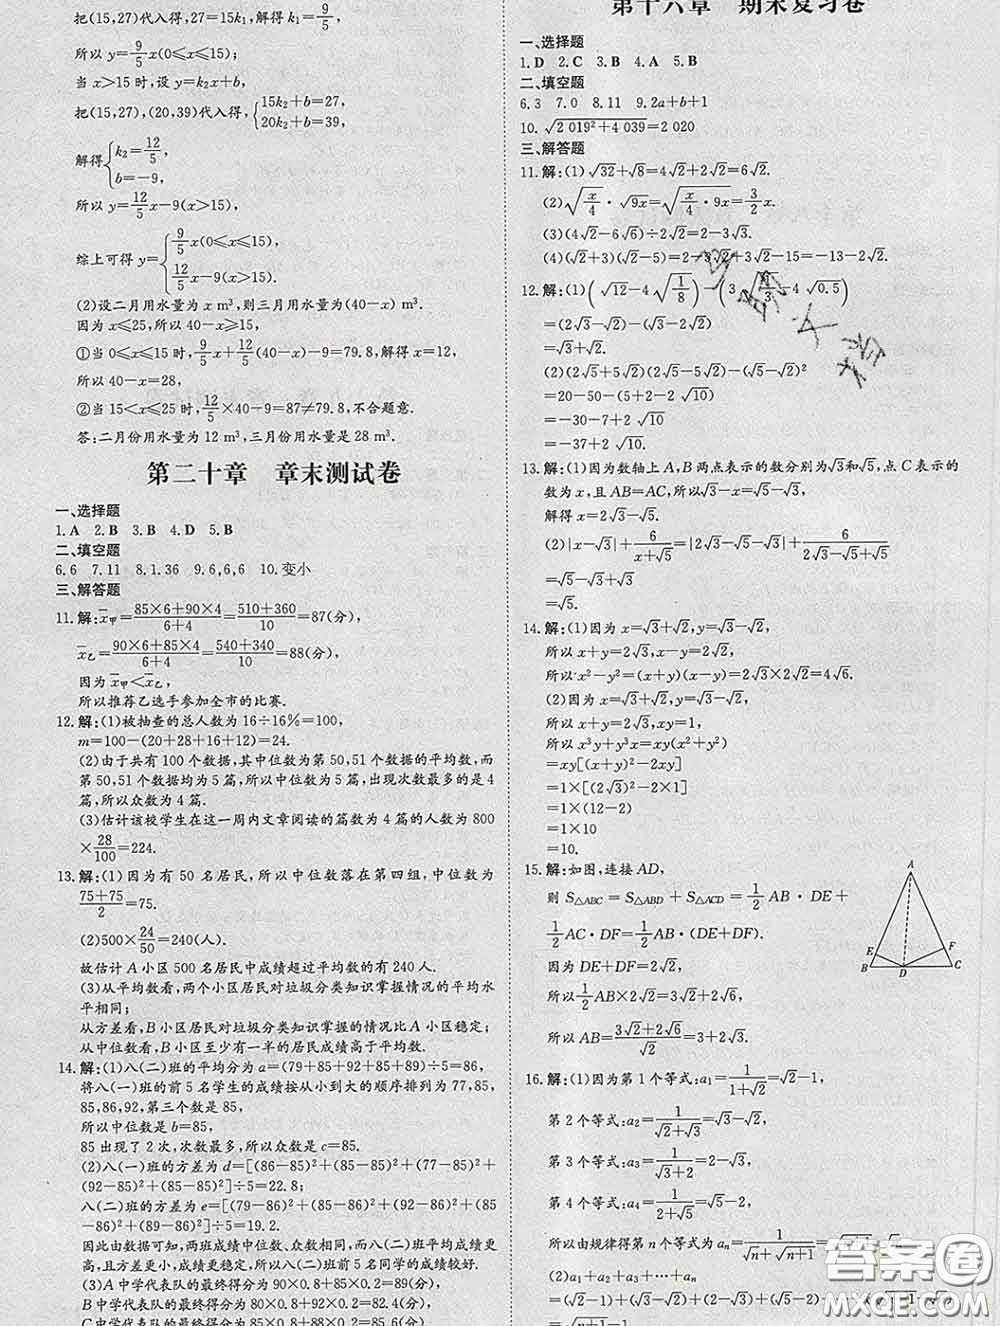 把(15,27)代入得,27=15k₁,解得 k₁=9/5,
所以 y=9/5x(0⩽x⩽15),
当 x>15 时,设 y=k₂x+b,
把(15,27),(20,39)代入得,{15k₂+b=27, 20k₂+b=39,
解得{k₂=12/5, b=-9,
所以 y=12/5x-9(x>15),
综上可得 y={9/5x(0⩽x⩽15), 12/5x-9(x>15).
(2)设二月用水量为 x m³,则三月用水量为(40-x) m³.
因为 x⩽25,所以 40-x⩾15,
①当 0⩽x⩽15 时,9/5x+12/5(40-x)-9=79.8,解得 x=12,
所以 40-x=28.
②当 15<x⩽25 时,12/5×40-9=87≠79.8,不合题意.
答:二月份用水量为 12 m³,三月份用水量是 28 m³.
第二十章 章末测试卷
一、选择题
1.A 2.B 3.B 4.D 5.B
二、填空题
6.6 7.11 8.1.36 9.6,6,6 10.变小
三、解答题
11.解:x̄甲=(85×6+90×4)/(6+4)=(510+360)/10=87(分),
x̄乙=(90×6+85×4)/(6+4)=(540+340)/10=88(分),
因为 x̄甲<x̄乙,
所以推荐乙选手参加全市的比赛.
12.解:(1)被抽查的总人数为 16÷16%=100,
m=100-(20+28+16+12)=24.
(2)由于共有 100 个数据,其中位数为第 50,51 个数据的平均数,而
第 50,51 个数据均为 5 篇,所以中位数为 5 篇,出现次数最多的是 4
篇,所以众数为 4 篇.
(3)估计该校学生在这一周内文章阅读的篇数为 4 篇的人数为 800
×28/100=224.
13.解:(1)因为有 50 名居民,所以中位数落在第四组,中位数为
(75+75)/2=75.
(2)500×24/50=240(人).
故估计 A 小区 500 名居民中成绩超过平均数的有 240 人.
(3)从平均数看,两个小区居民对垃圾分类知识掌握情况的平均水
平相同;
从方差看,B 小区居民对垃圾分类知识掌握的情况比 A 小区稳定;
从中位数看,B 小区至少有一半的居民成绩高于平均数.
14.解:(1)八(一)班的平均分为 a=(79+85+92+85+89)÷5=86,
将八(一)班的前 5 名学生的成绩按从小到大的顺序排列为 77,85,
85,86,92,第三个数是 85,
所以中位数 b=85,
85 出现了 2 次,次数最多,所以众数是 c=85.
(2)八(一)班的方差为 d=[(86-85)²+(85-85)²+(77-85)²+
(92-85)²+(85-85)²]÷5=22.8;
八(二)班的方差为 e=[(79-86)²+(85-86)²+(92-86)²+(85
-86)²+(89-86)²]÷5=19.2.
因此由数据可知,两班成绩中位数、众数相同,而八(二)班平均成绩更
高,且成绩更稳定,所以八(二)班前 5 名同学的成绩较好.
(3)A 中学代表队的最终得分为 90×0.8+85×0.2=89(分),
B 中学代表队的最终得分为 80×0.8+92×0.2=82.4(分),
第十六章 期末复习卷
一、选择题
1.D 2.C 3.B 4.A 5.B
二、填空题
6.3 7.0 8.11 9.2a+b+1
10.√(2 019²+4 039)=2 020
三、解答题
11.解:(1)√32+√8=4√2+2√2=6√2.
(2)√(x/4)·√(9x)=√(x/4·9x)=3/2x.
(3)(4√2-6√6)÷2√2=2-3√3.
(4)(√2+3)(√2-5)=2-5√2+3√2-15=-13-2√2.
12.解:(1)(√12-4√(1/8))-(3√(1/3)-4√0.5)
=(2√3-√2)-(√3-2√2)
=√3+√2.
(2)(2√5+5√2)(2√5-5√2)-(√5-√2)²
=20-50-(5+2-2√10)
=-30-7+2√10
=-37+2√10
13.解:(1)因为数轴上 A,B 两点表示的数分别为√3和√5,点 C 表示的
数为 x,且 AB=AC,所以√3-x=√5-√3,
解得 x=2√3-√5.
(2)|x-√3|+6/(x+√5)=|2√3-√5-√3|+6/(2√3-√5+√5)
=√5-√3+√3
=√5.
14.解:(1)因为 x=√3+√2,y=√3-√2,
所以 x+y=2√3,x-y=2√2,
所以 x²-y²=(x+y)(x-y)=2√3×2√2=4√6.
(2)因为 x=√3+√2,y=√3-√2,
所以 x+y=2√3,xy=1,
所以 x³y+y³x=xy(x²+y²)
=xy[(x+y)²-2xy]
=1×[(2√3)²-2×1]
=1×(12-2)
=1×10
=10.
15.解:如图,连接 AD,
则 S△ABC=S△ABD+S△ACD=1/2AB·DE+
1/2AC·DF=1/2AB·(DE+DF).
因为 DE+DF=2√2,
所以1/2AB×2√2=3√2+2√6,
所以 AB=(3√2+2√6)/√2=3+2√3.
A
E
F
B
D
C
16.解:(1)因为第 1 个等式:a₁=1/(1+√2)=√2-1,
第 2 个等式:a₂=1/(√2+√3)=√3-√2,
第 3 个等式:a₃=1/(√3+2)=2-√3,
第 4 个等式:a₄=1/(2+√5)=√5-2,
所以由规律得第 n 个等式为 aₙ=1/(√n+√(n+1))
(2)a₁+a₂+a₃+…+aₙ
=(√2-1)+(√3-√2)+(2-√3)+(√5-2)+…
答案圈
MXQE.COM